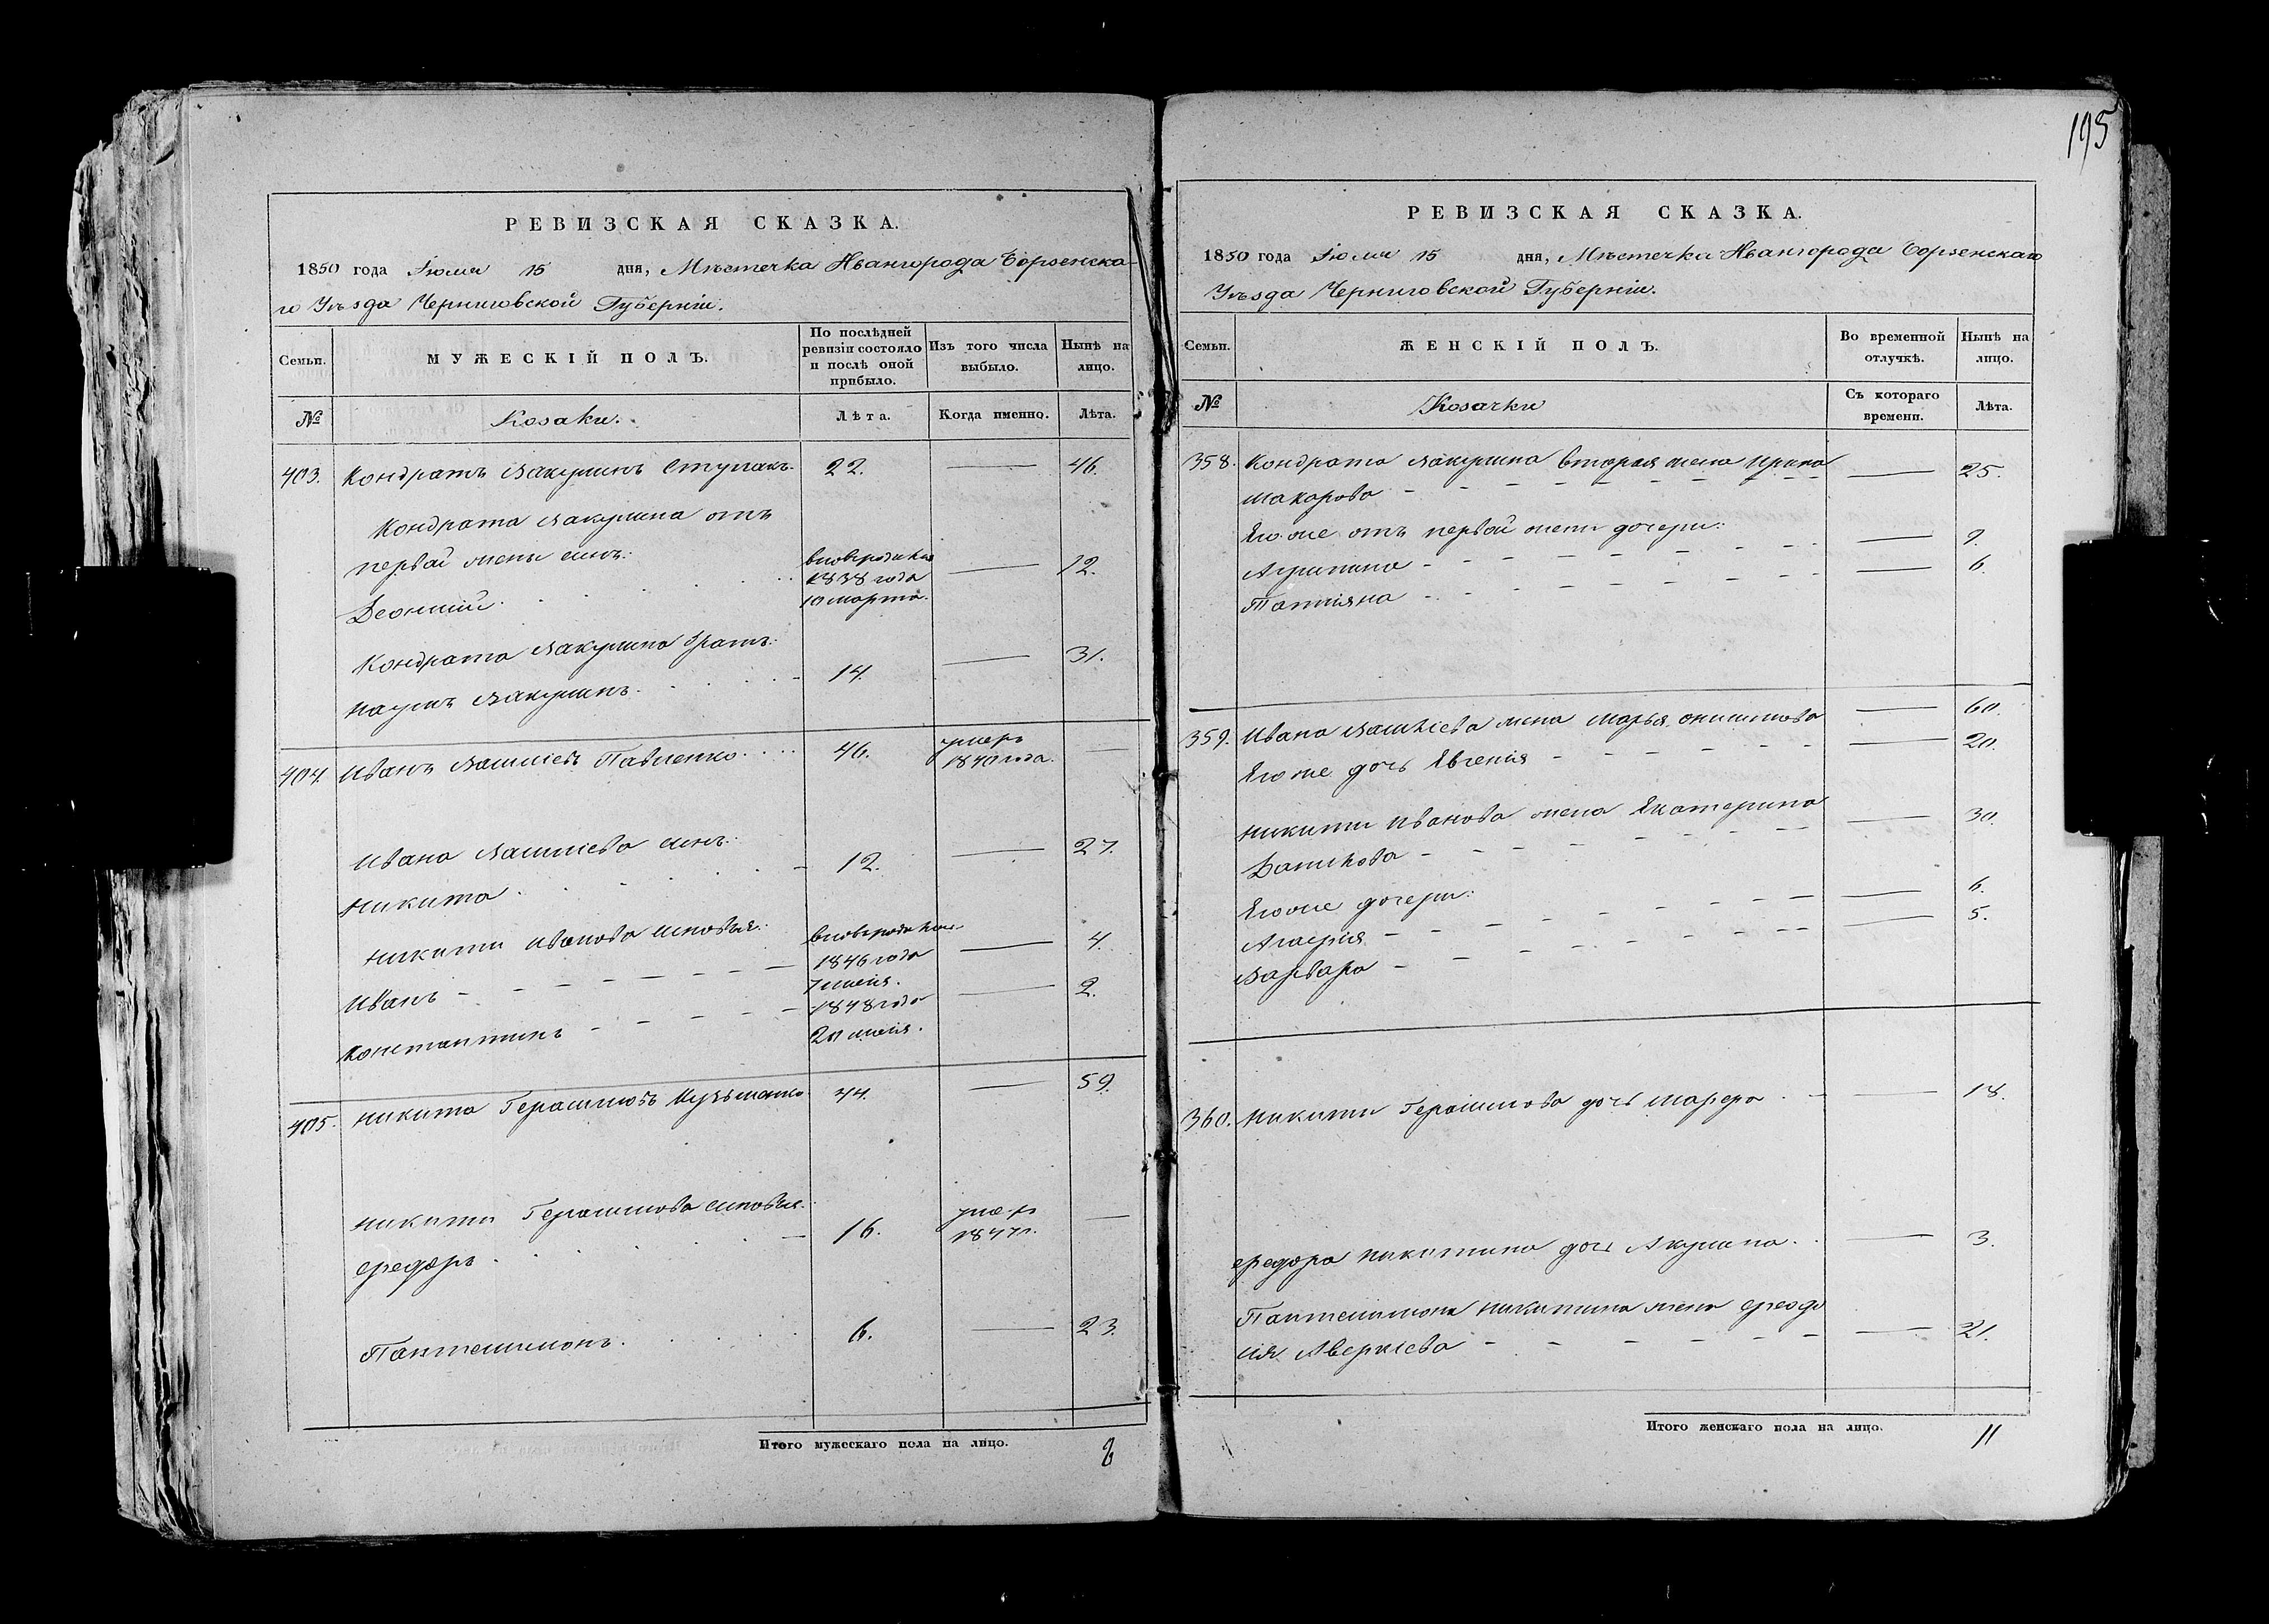 195
РЕВИЗСКАЯ СКАЗКА.
1850 года Іюля 15 дня, Мѣстечка Ивангорода Борзенска-
го Уѣзда Черниговской Губерніи.
Семьи. МУЖЕСКІЙ ПОЛЪ. По послѣдней ревизіи состояло и послѣ оной прибыло. Изъ того числа выбыло. Нынѣ на лицо.
№ Козаки. Лѣта. Когда именно. Лѣта.
403. Кондратъ Вакулинъ Ступакъ. 22. — 46.
Кондрата Вакулина отъ
первой жены сынъ:
Леонтій вновърожден 1838 года 10 марта. — 12.
Кондрата Вакулина братъ:
Наумъ Вакулинъ 14. — 31.
404. Иванъ Павленко 46. умеръ 1840 года. —
Ивана сынъ:
Никита 12. — 27.
Никиты Иванова сыновья: вновърожден
Иванъ 1846 года 7 — 4.
Константинъ 1848 года 20 — 2.
405. Никита Герасимовъ 44. — 59.
Никиты Герасимова сыновья:
Федоръ 16. умеръ 1847 г. —
Пантелимонъ 6. — 23.
Итого мужескаго пола на лицо. 8
РЕВИЗСКАЯ СКАЗКА.
1850 года Іюля 15 дня, Мѣстечка Ивангорода Борзенскаго
Уѣзда Черниговской Губерніи.
Семьи. ЖЕНСКІЙ ПОЛЪ. Во временной отлучкѣ. Нынѣ на лицо.
№ Козачки Съ котораго времени. Лѣта.
358. Кондрата Вакулина вторая жена Ирина
Макарова — 25.
Его же отъ первой жены дочери:
Агрипина — 9.
Татіяна — 6.
359. Ивана жена Марья — 60.
Его же дочь Евгенія — 20.
Никиты Иванова жена Екатерина
Данилова — 30.
Его же дочери:
— 6.
Варвара — 5.
360. Никиты Герасимова дочь Марфа — 18.
Федора Никитина дочь Акулина — 3.
Пантелимона Никитина жена Феодо
сія Аверкіева — 21.
Итого женскаго пола на лицо. 11